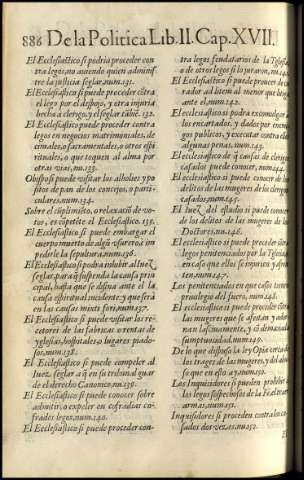 886 De la Politica Lib. II. Cap. XVII.
El Ecclesiastico si podria proceder con
tra legos, no auiendo quien adminis
tre la justicia seglar, num. 131.
El Ecclesiastico si puede proceder cõtra
el lego por el despojo, y otra injuria
hecha a clerigo, y el seglar
El Ecclesiastico puede proceder contra
legos en negocios matrimoniales, de
cimales, o sacramentales, o otros espi
rituales, o que toquen al alma por
otras vias, nu. 133.
Obispo si puede visitar los alholies y po
sitos de pan de los concejos, o parti-
culares, num. 134.
Sobre el cũplimiẽto, o relaxaciõ de vo-
tos, es cõpetẽte el Ecclesiastico. 135.
El Ecclesiastico si puede embargar el
cuerpo muerto de algũ vsurero, è im
pedirle la sepultura, nu. 136.
El Ecclesiastico si podra inhibir al juez
seglar, para q̃ suspenda la causa prin
cipal, hasta que se difina ante el la
causa espiritual incidente: y que serà
en las causas mixti fori, num. 137.
El Ecclesiastico si puede visitar los re-
ceptores de las fabricas o rentas de
yglesias, hospitales, o lugares piado-
sos, num. 138.
El Ecclesiastico si puede compeler al
juez seglar a q̃ en su tribunal guar
de el derecho Canonico, nu. 139.
El Ecclesiastico si puede conocer sobre
admitir, o expeler en cofradias co-
frades legos, num. 140.
El Ecclesiastico si puede proceder con-
tra legos feudatarios de la Yglesia,
o de otros legos si lo juraron, nu. 141.
El Ecclesiastico si puede proueer de cu
rador ad litem al menor que litiga
ante el, num. 142.
El Ecclesiastico si podra excomulgar a
los encartados, y dados por enemi-
gos publicos, y executar contra ellos
algunas penas, num. 143.
El Ecclesiastico de q̃ causas de clerigos
casados puede conocer, num. 144.
El Ecclesiastico si puede conocer de los
delitos de las mugeres de los clerigos
casados, num. 145.
El juez del estudio si puede conocer
de los delitos de las mugeres de los
Doctores, nu. 146.
El Ecclesiastico si puede proceder cõtra
legos penitenciados por la Yglesia,
en caso que ellos si injurien
num. 147.
Los penitenciados en que casos tienen
priuilegio del fuero, num. 148.
El Ecclesiastico si puede proceder contra
las mugeres que se afeitan y ador
nan lasciuamente, y cõ demasiada
sumptuosidad, num. 149.
De lo que dispuso la ley Opia cerca de
los trages de las mugeres, y del
so que en esto ay, num. 150.
Los Inquisidores si pueden prohibir a
los legos sospechosos de la Fè
armas, num. 151.
Inquisidores si proceden contra los ca-
sados dos vezes, nu. 152.